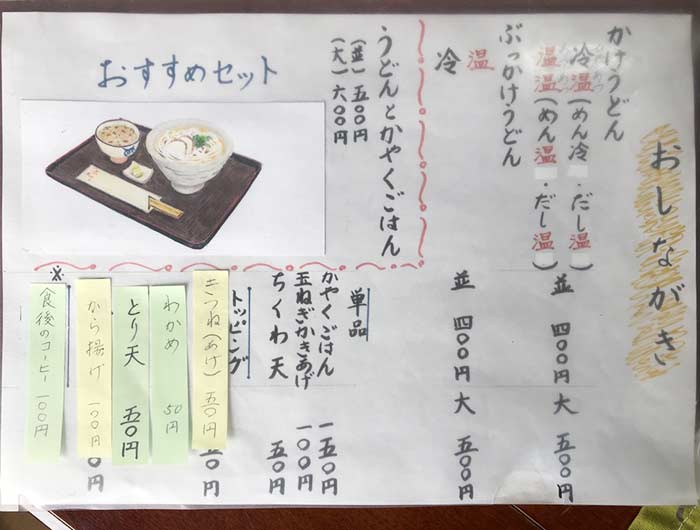 おしながき
かけうどん
冷温(めん冷・だし温)
温温(めん温・だし温)
並 四〇〇円 大 五〇〇円
ぶっかけうどん
温
冷
並 四〇〇円 大 五〇〇円
うどんとかやくごはん
(並)五〇〇円
(大)六〇〇円
おすすめセット
単品
かやくごはん 一五〇円
玉ねぎかきあげ 一〇〇円
ちくわ天 五〇円
トッピング
きつね(あげ) 五〇円
わかめ 50円
とり天 五〇円
から揚げ 一〇〇円
※食後のコーヒー 一〇〇円